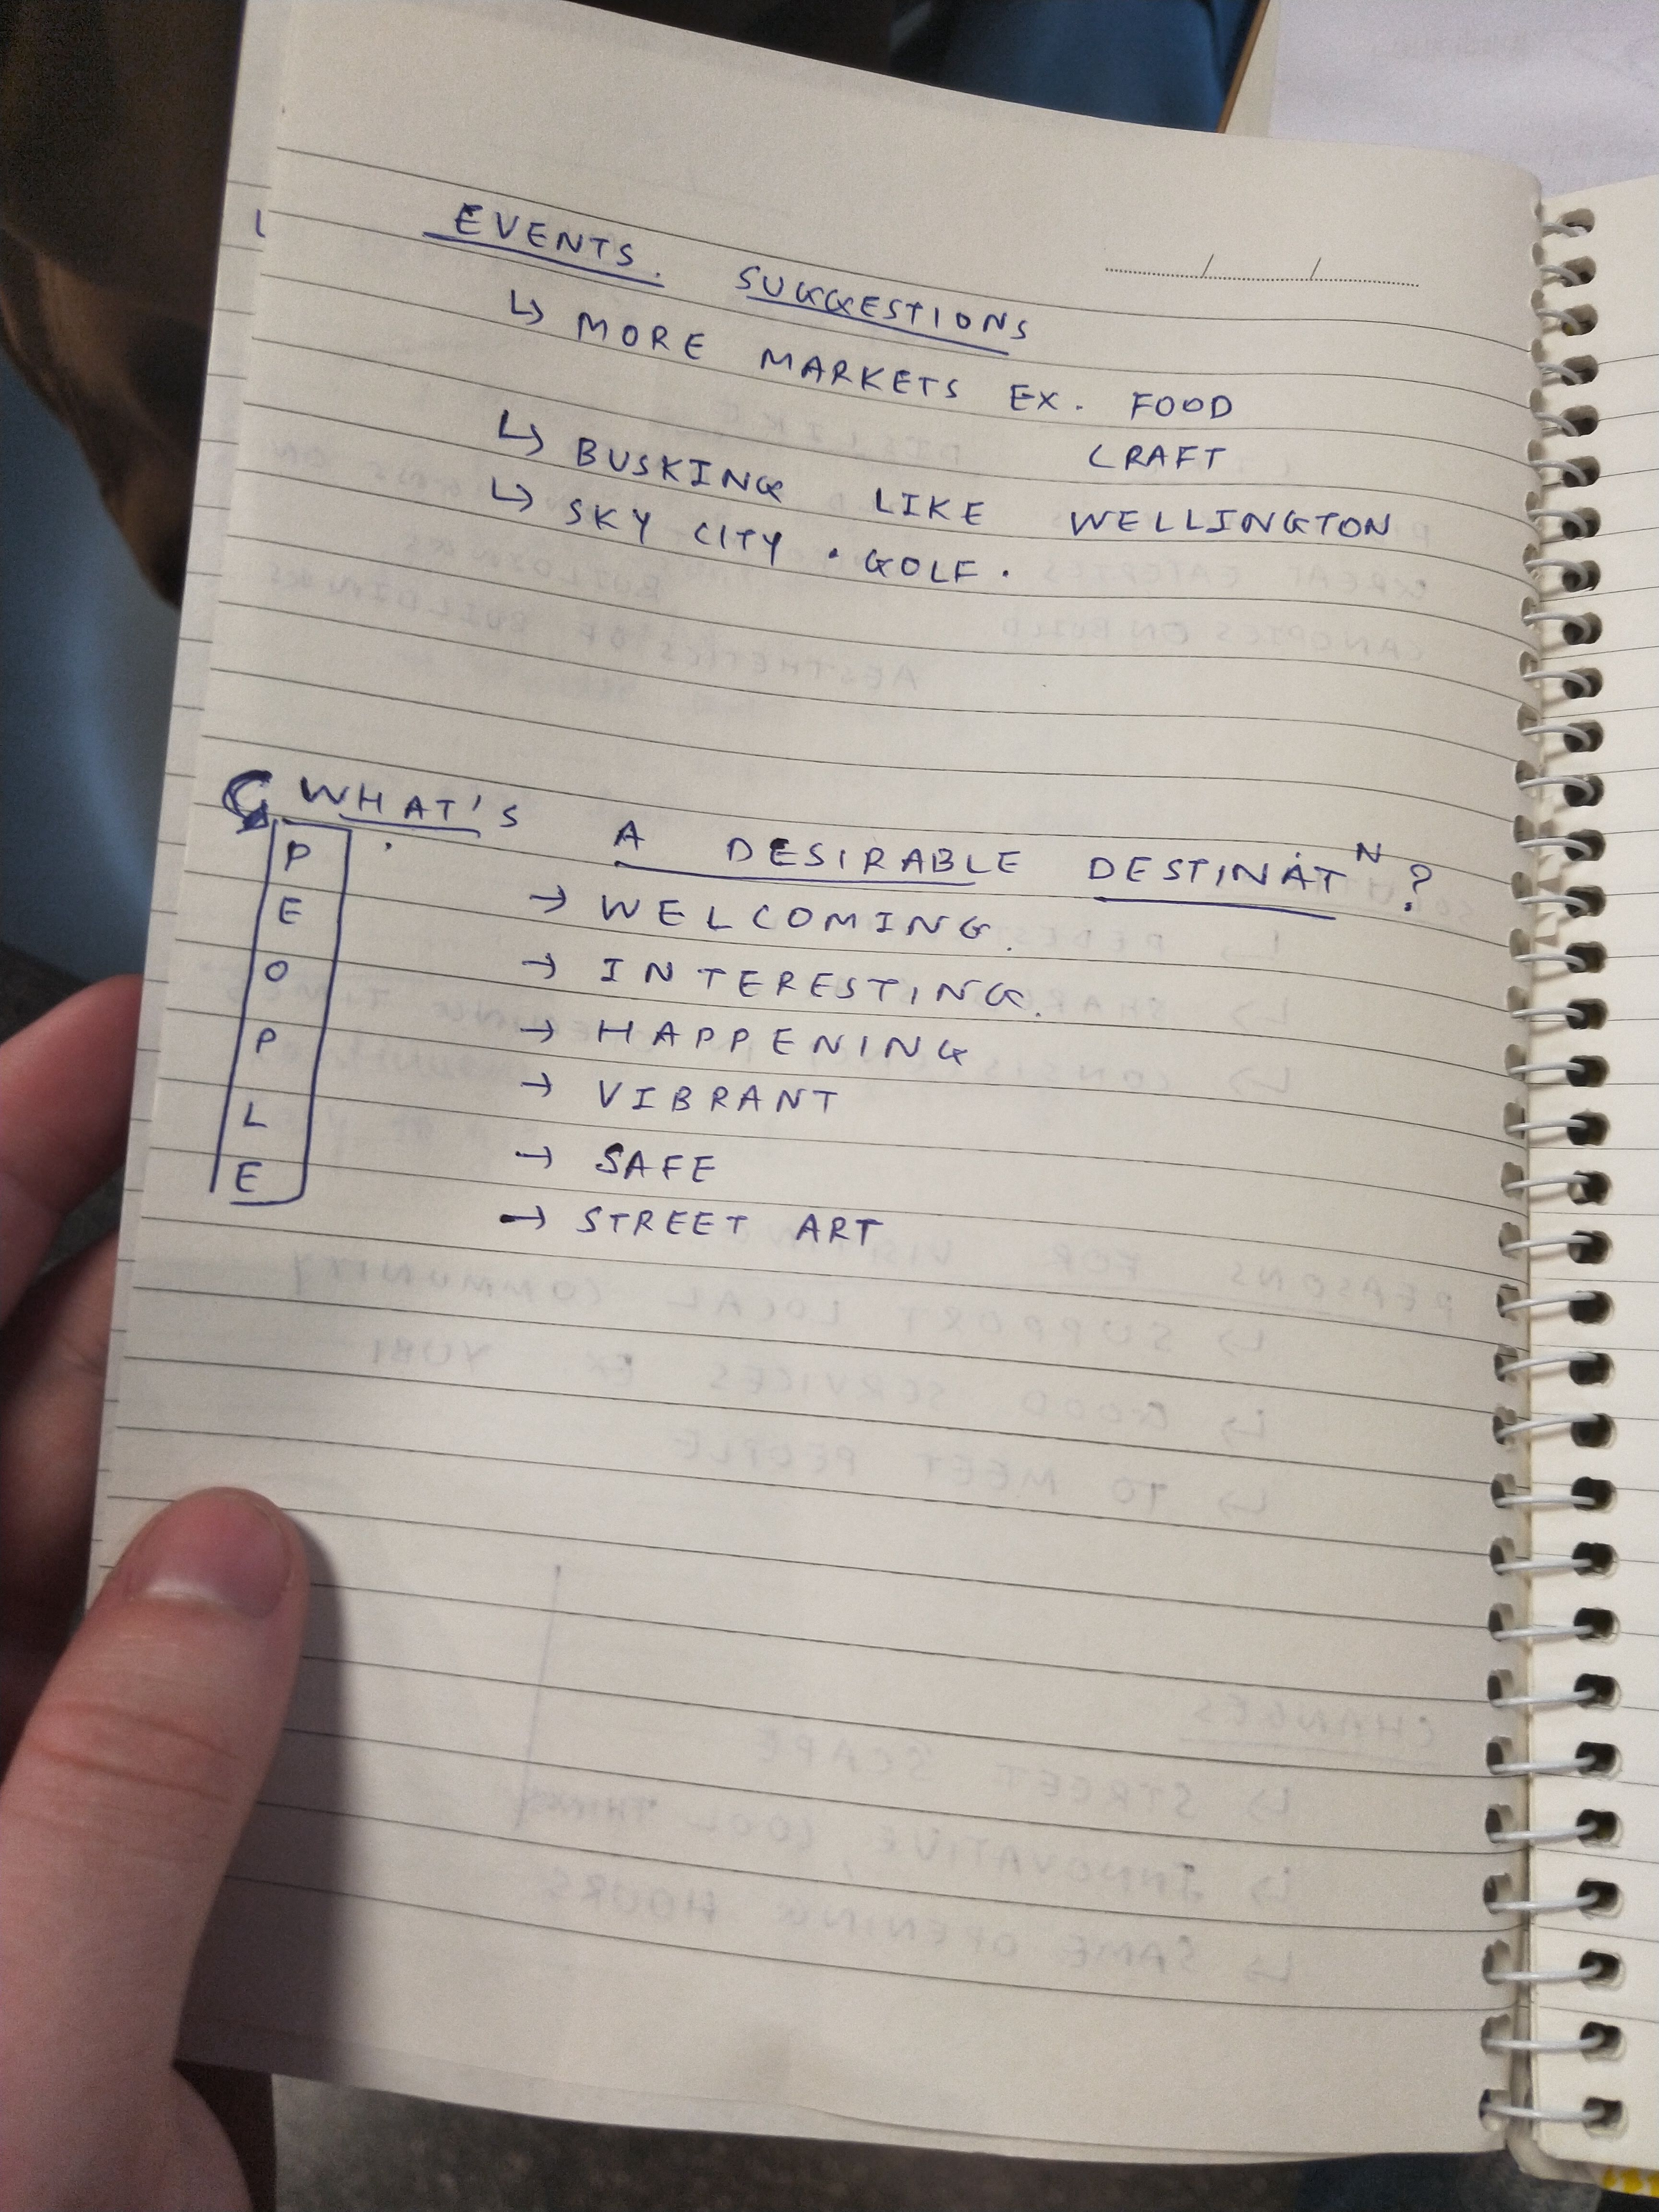 EVENTS. SUGGESTIONS
↳ MORE MARKETS EX. FOOD
CRAFT
↳ BUSKING LIKE WELLINGTON
↳ SKY CITY . GOLF.
WHAT'S A DESIRABLE DESTINATN?
PEOPLE
→ WELCOMING.
→ INTERESTING.
→ HAPPENING
→ VIBRANT
→ SAFE
→ STREET ART